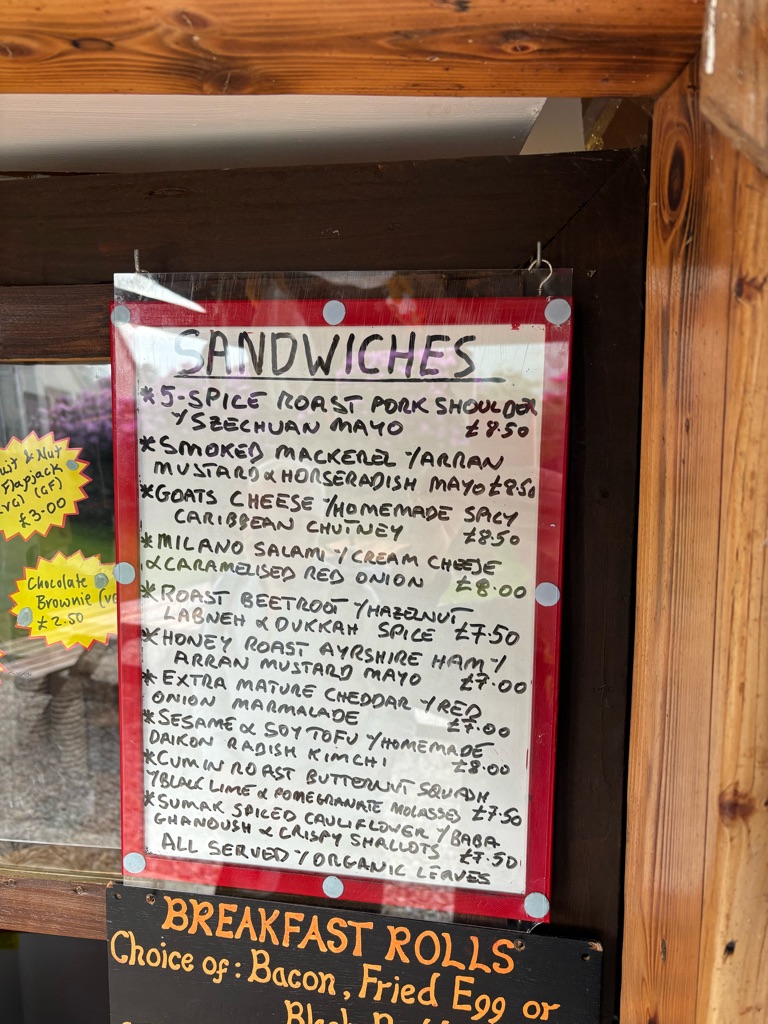 SANDWICHES
* 5-SPICE ROAST PORK SHOULDER
Y SZECHUAN MAYO £8.50
* SMOKED MACKEREL Y ARRAN
MUSTARD & HORSERADISH MAYO £8.50
* GOATS CHEESE Y HOMEMADE SPICY
CARIBBEAN CHUTNEY £8.50
* MILANO SALAMI Y CREAM CHEESE
& CARAMELISED RED ONION £8.00
* ROAST BEETROOT Y HAZELNUT
LABNEH & DUKKAH SPICE £7.50
* HONEY ROAST AYRSHIRE HAM Y
ARRAN MUSTARD MAYO £7.00
* EXTRA MATURE CHEDDAR Y RED
ONION MARMALADE £7.00
* SESAME & SOY TOFU Y HOMEMADE
DAIKON RADISH KIMCHI £8.00
* CUMIN ROAST BUTTERNUT SQUASH
Y BLACK LIME & POMEGRANATE MOLASSES £7.50
* SUMAK SPICED CAULIFLOWER Y BABA
GHANOUSH & CRISPY SHALLOTS £7.50
ALL SERVED Y ORGANIC LEAVES
& Nut
Flapjack
(GF)
£3.00
Chocolate
Brownie
£2.50
BREAKFAST ROLLS
Choice of: Bacon, Fried Egg or